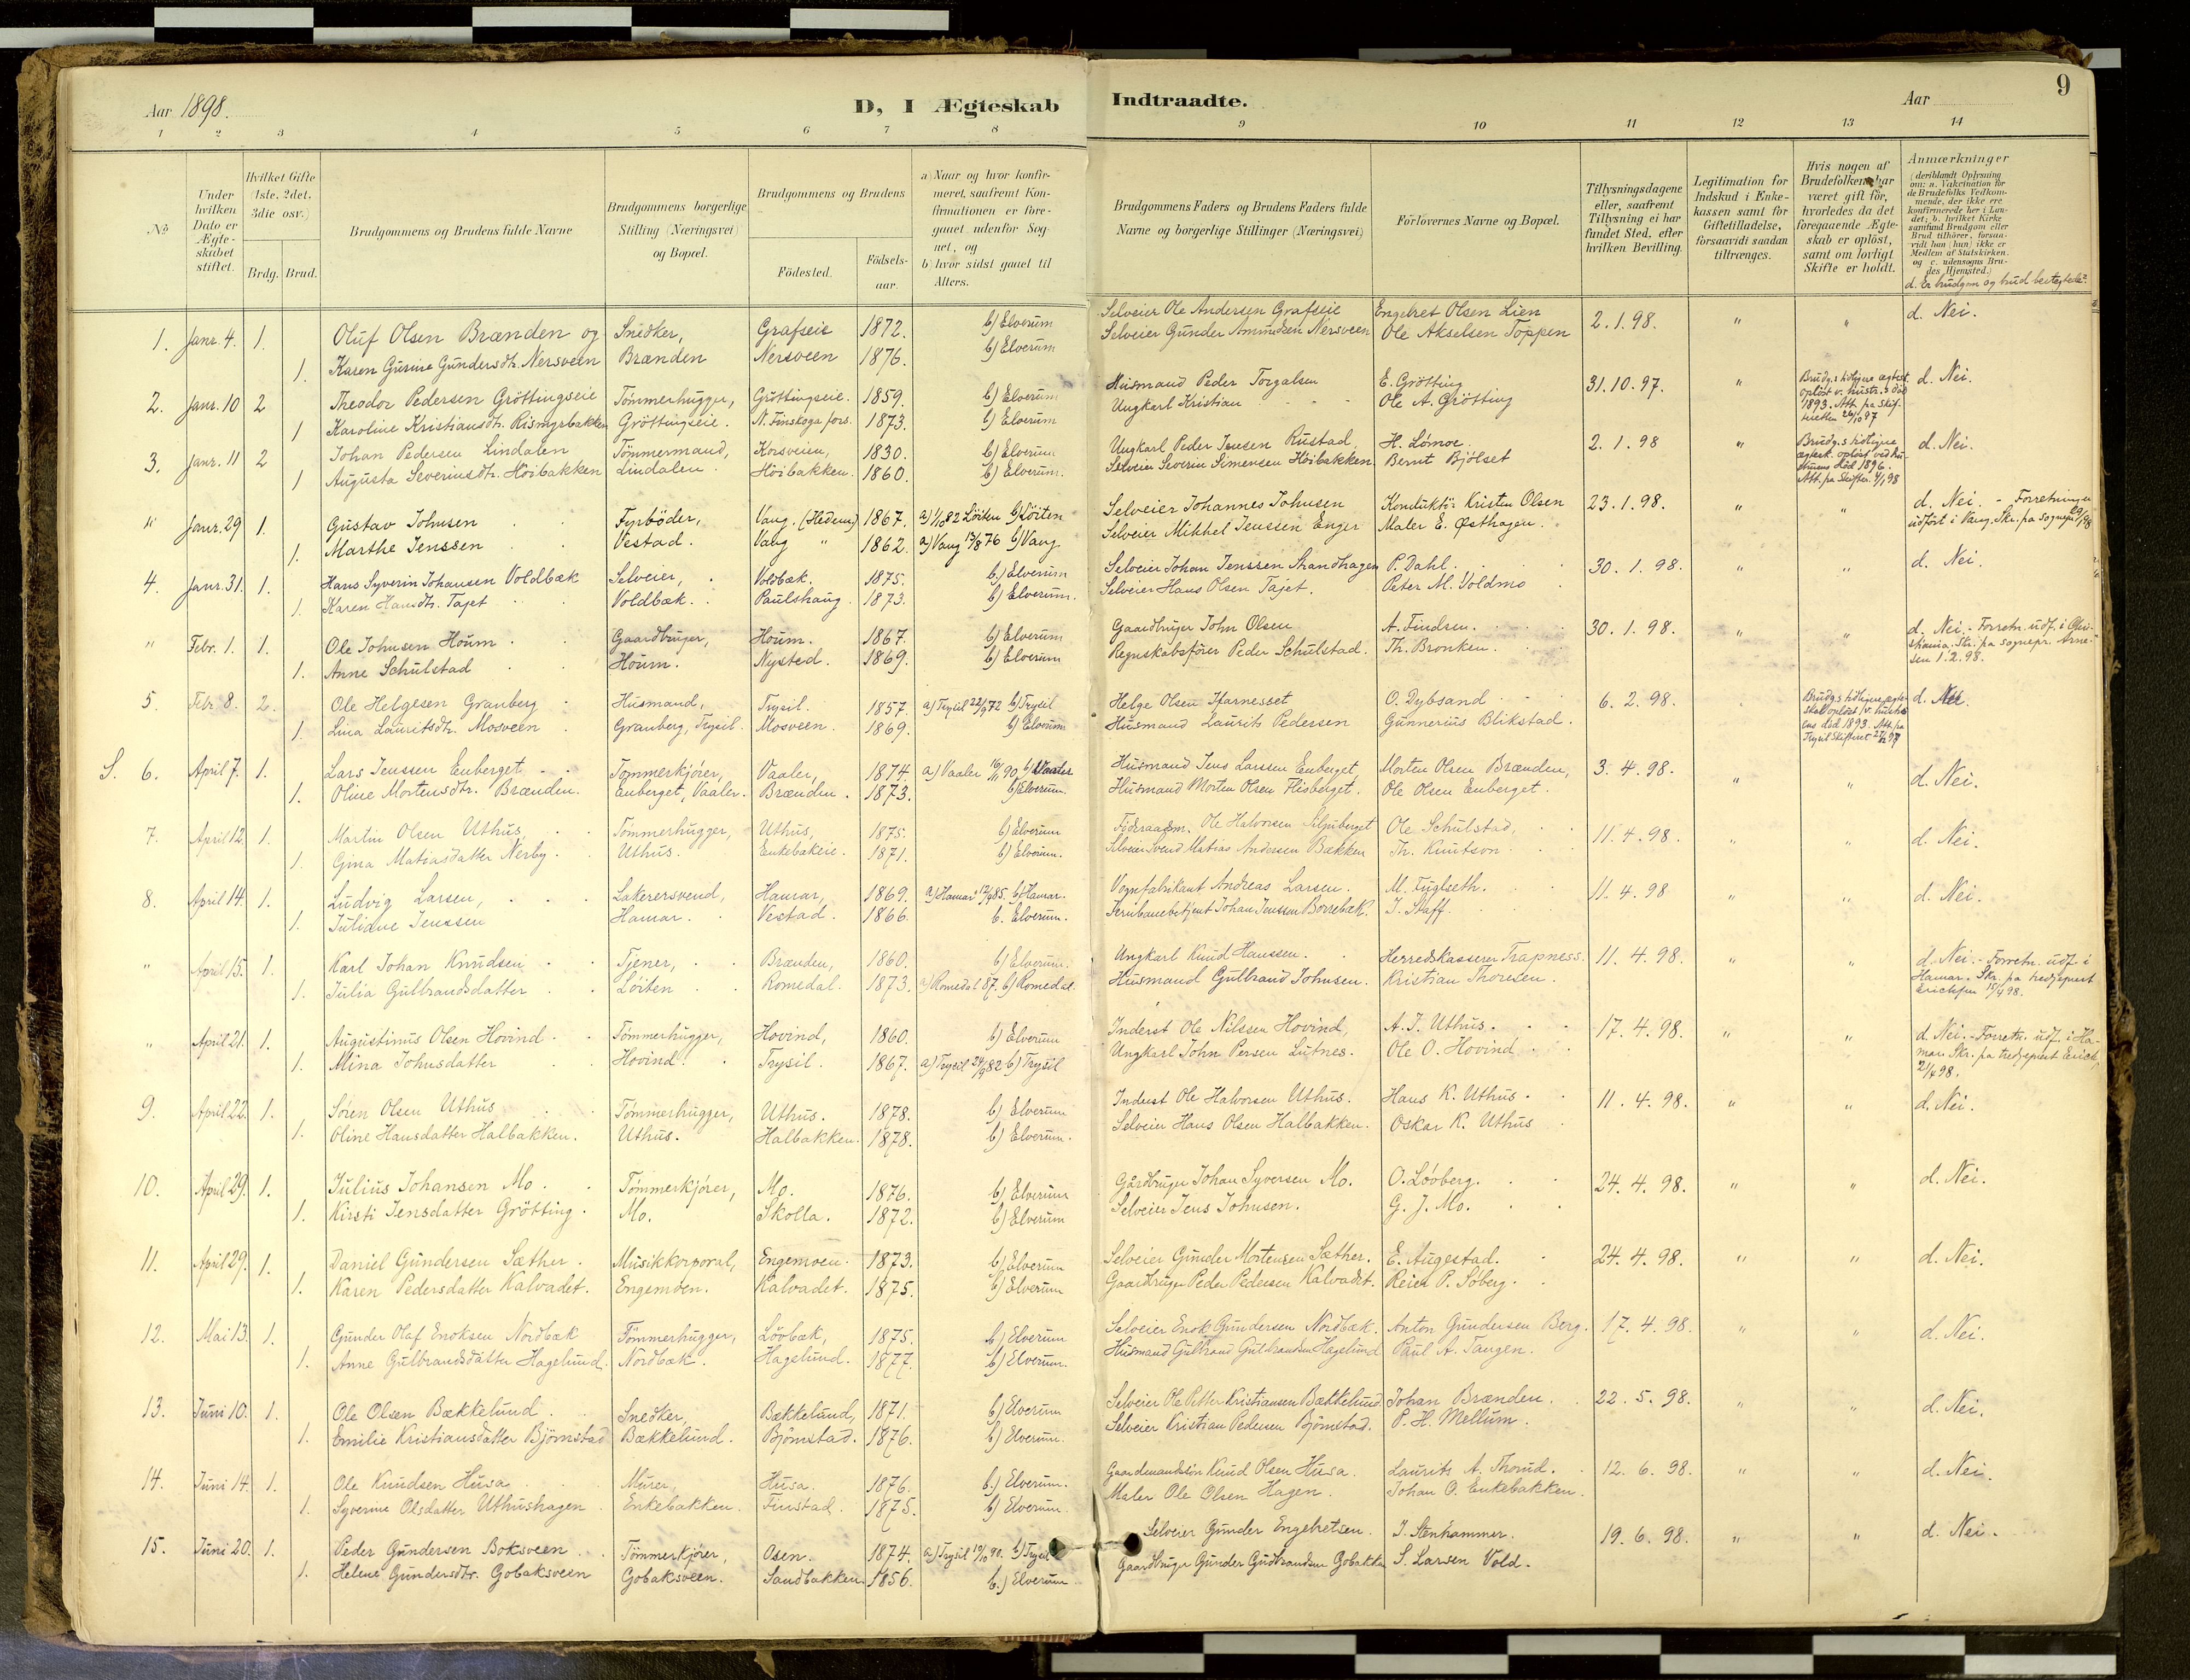 Aar 1898.
D, I Ægteskab Indtraadte.
Aar
9
1 2 3 4 5 6 7 8 9 10 11 12 13 14
№
Under hvilken Dato er Ægteskabet stiftet.
Hvilket Gifte (1ste, 2det, 3die osv.)
Brdg. Brud.
Brudgommens og Brudens fulde Navne
Brudgommens borgerlige Stilling (Næringsvei) og Bopæl.
Brudgommens og Brudens
Födested.
Födselsaar.
a) Naar og hvor konfirmeret, saafremt Konfirmationen er foregaaet udenfor Sognet, og
b) hvor sidst gaaet til Alters.
Brudgommens Faders og Brudens Faders fulde Navne og borgerlige Stillinger (Næringsvei)
Forlovernes Navne og Bopæl.
Tillysningsdagene eller, saafremt Tillysning ei har fundet Sted, efter hvilken Bevilling.
Legitimation for Indskud i Enkekassen samt for Giftetilladelse, forsaavidt saadan tiltrænges.
Hvis nogen af Brudefolkene har været gift før, hvorledes da det foregaaende Ægteskab er oplöst, samt om lovligt Skifte er holdt.
Anmærkninger (deriblandt Oplysning om: a. Vakcination for de Brudefolks Vedkommende, der ikke ere konfirmerede her i Landet; b. hvilket Kirkesamfund Brudgom eller Brud tilhører, forsaavidt han (hun) ikke er Medlem af Statskirken, og c. udensogns Brudes Hjemsted.)
d. Er brudgom og brud beslægtede?
1. Janr. 4. 1. Oluf Olsen Brænden og Snedker, Grafseie 1872. b) Elverum Selveier Ole Andersen Grafseie Engebret Olsen Lien 2.1.98. " " d. Nei.
1. Karen Gurine Gundersdtr. Nersveen Brænden Nersveen 1876. b) Elverum Selveier Gunder Amundsen Nersveen Ole Akselsen Toppen
2. Janr. 10 2 Theodor Pedersen Gröttingseie Tömmerhugger, Gröttingseie. 1859. b) Elverum Husmand Peder Torgalsen E. Grötting 31.10.97. " Brudg.s tidligere ægtesk. oplöst v. hustr.s död 1893. Att. fra Skifteretten 26/10 97 d. Nei.
1 Karoline Kristiansdtr. Rismyrbakken Gröttingseie. N. Finskoga fors. 1873. b) Elverum Ungkarl Kristian - - - Ole A. Grötting
3. Janr. 11 2 Johan Pedersen Lindalen Tömmermand, Korsveien, 1830. b) Elverum Ungkarl Peder Jensen Rustad H. Lömoe. 2.1.98 " Brudg.s tidligere ægtesk. oplöst ved hustruens död 1896. Att. fra Skifter. 4/1 98 d. Nei.
1 Augusta Severinsdtr. Höibakken Lindalen. Höibakken. 1860. b) Elverum. Selveier Severin Simensen Höibakken. Bernt Bjölset
" Janr. 29 1. Gustav Johnsen Fyrböder, Vang. (Hedem) 1867. a) 1/10 82 Löiten b) Löiten Selveier Johannes Johnsen Konduktör Kristen Olsen 23.1.98. " " d. Nei. - Forretningen udfört i Vang. Skr. fra sognepr. 29/1 98
1. Marthe Jenssen Vestad. Vang " 1862. a) Vang 13/8 76 b) Vang Selveier Mikkel Jenssen Enger Maler E. Østhagen.
4. Janr. 31. 1. Hans Syverin Johansen Voldbæk Selveier, Voldbæk. 1875. b.) Elverum Selveier Johan Jenssen Strandhagen P. Dahl. 30.1.98. " " d. Nei.
1. Karen Hansdtr. Tajet Voldbæk. Paulshaug. 1873. b) Elverum. Selveier Hans Olsen Tajet. Peter M. Voldmo
" Febr. 1. 1. Ole Johnsen Houm Gaardbruger, Houm. 1867. b) Elverum Gaardbruger John Olsen A. Findsen. 30.1.98. " " d. Nei. - Forretn. udf. i Christiania. Skr. fra sognepr. Arnesen 1.2.98.
1. Anne Schulstad Houm. Nysted. 1869. b) Elverum Regnskabsfører Peder Schulstad. Th. Bronken.
5. Febr. 8. 2. Ole Helgesen Granberg Husmand, Trysil. 1857 a) Trysil 22/9 72 b) Trysil Helge Olsen O. Dybsand 6.2.98. Brudg.s tidligere ægteskab oplöst v. hustruens död 1893. Att. fra Trysil Skifteret 27/12 97 d. Nei.
1. Lina Lauritsdtr. Mosveen Granberg, Trysil. Mosveen. 1869. b) Elverum Husmand Laurits Pedersen Gunnerius Blikstad.
S. 6. April 7. 1. Lars Jenssen Enberget Tømmerkjörer, Vaaler, 1874. a) Vaaler 16/11 90. b) Vaaler Husmand Jens Larssen Enberget Morten Olsen Brænden, 3.4.98. " " d. Nei.
1. Oline Mortensdtr. Brænden. Enberget, Vaaler. Brænden. 1873. b) Elverum. Husmand Morten Olsen Flisberget. Ole Olsen Enberget.
7. April 12. 1. Martin Olsen Uthus, Tömmerhugger, Uthus, 1875. b) Elverum Föderaadsm. Ole Halvorsen Siljuberget Ole Schulstad, 11.4.98. " " d. Nei.
1. Gina Matiasdatter Nerby. Uthus. Enkebakeie. 1871. b) Elverum. Selveier Svend Matias Andersen Bakken Th. Knutson
8. April 14. 1. Ludvig Larsen, Lakerersvend, Hamar, 1869. a) Hamar 12/4 85. b) Hamar. Vognfabrikant Andreas Larsen. M. Fuglseth. 11.4.98 " " d. Nei.
1. Juliane Jenssen Hamar. Vestad. 1866. b. Elverum. Jernbanebetjent Johan Jenssen Borrebæk. J. Staff.
" April 15. 1. Karl Johan Knudsen Tjener, Brænden, 1860. b) Elverum. Ungkarl Knud Hanssen. Herredskasserer Trapness. 11.4.98. " " d. Nei. - Forretn. udf. i Hamar. Skr. fra tredjeprest Erichsen 15/4 98.
1. Julia Gulbrandsdatter Löiten Romedal. 1873. a) Romedal 87. b) Romedal. Husmand Gulbrand Johnsen. Kristian Thoresen.
" April 21. 1. Augustinus Olsen Hovind Tömmerhugger, Hovind, 1860. b) Elverum Inderst Ole Nilssen Hovind, A. J. Uthus. 17.4.98. " " d. Nei. - Forretn. udf. i Hamar. Skr. fra tredjeprest Erichs. 21/4 98.
1. Mina Johnsdatter Hovind. Trysil. 1867. a) Trysil 24/9 82 b) Trysil Ungkarl John Persen Lutnes. Ole O. Hovind
9. April 22. 1. Sören Olsen Uthus Tömmerhugger, Uthus. 1878. b) Elverum Inderst Ole Halvorsen Uthus. Hans K. Uthus. 11.4.98. " " d. Nei.
1. Oline Hansdatter Halbakken. Uthus. Halbakken. 1878. b) Elverum. Selveier Hans Olsen Halbakken. Oskar K. Uthus
10. April 29. 1. Julius Johansen Mo. Tömmerkjörer, Mo. 1876. b) Elverum Gårdbruger Johan Syversen Mo. O. Lööberg. 24.4.98. " " d. Nei.
1. Kirsti Jensdatter Grötting. Mo. Skolla. 1872. b) Elverum Selveier Jens Johnsen. G. J. Mo.
11. April 29. 1. Daniel Gundersen Sæther. Musikkorporal, Engemoen. 1873. b) Elverum Selveier Gunder Mortensen Sæther. E. Augestad. 24.4.98. " " d. Nei.
1. Karen Pedersdatter Kalvadet. Engemoen. Kalvadet. 1875. b) Elverum Gaardbruger Peder Pedersen Kalvadet. Reier P. Söberg.
12. Mai 13. 1. Gunder Olaf Enoksen Nordbæk Tömmerhugger, Lövbæk, 1875. b) Elverum Selveier Enok Gundersen Nordbæk. Anton Gundersen Berg. 17.4.98. " " d. Nei.
1. Anne Gulbrandsdatter Hagelund. Nordbæk. Hagelund. 1877. b) Elverum. Husmand Gulbrand Gulbrandsen Hagelund Paul A. Tangen.
13. Juni 10. 1. Ole Olsen Bækkelund. Snedker, Bækkelund, 1871. b) Elverum Selveier Ole Petter Kristiansen Bækkelund Johan Brænden. 22.5.98. " " d. Nei.
1. Emilie Kristiansdatter Björnstad Bækkelund. Björnstad. 1876. b) Elverum. Selveier Kristian Pedersen Björnstad. P. H. Mellum.
14. Juni 14. 1. Ole Knudsen Husa Murer, Husa. 1876. b.) Elverum. Gaardmandssön Knud Olsen Husa. Laurits A. Thorud. 12.6.98. " " d. Nei.
1. Syverine Olsdatter Uthushagen Enkebakken. Finstad. 1875. b) Elverum. Maler Ole Olsen Hagen. Johan O. Enkebakken.
15. Juni 20. 1. Peder Gundersen Boksveen Tömmerkjörer, Osen. 1874. a) Trysil 19/10 90. b) Trysil Selveier Gunder Engebretsen. J. Stenhammer. 19.6.98. " " d. Nei.
1. Helene Gundersdtr. Gobaksveen Gobaksveen. Sandbakken. 1856. b.) Elverum Gaardbruger Gunder Gudbrandsen Gobakken S. Larsen Vold.